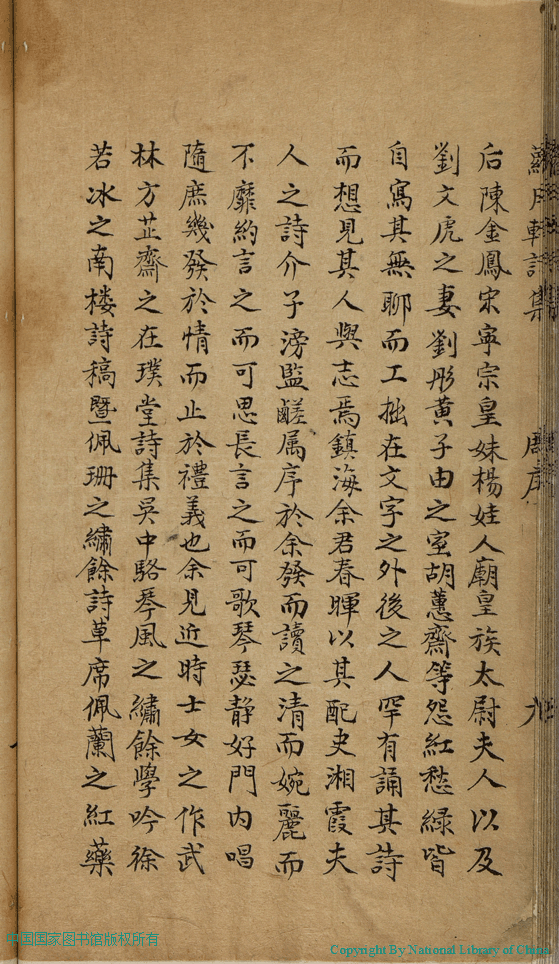 繡月軒詩集 周序 九
后陳金鳳宋寧宗皇妹楊娃人廟皇族太尉夫人以及
劉文虎之妻劉彤黃子由之室胡蕙齋等怨紅愁綠皆
自寫其無聊而工拙在文字之外後之人罕有誦其詩
而想見其人與志焉鎮海余君春暉以其配史湘霞夫
人之詩介子滂監鹺属序於余發而讀之清而婉麗而
不靡約言之而可思長言之而可歌琴瑟静好門内唱
隨庶幾發於情而止於禮義也余見近時士女之作武
林方芷齋之在璞堂詩集吳中駱琴風之繡餘學吟徐
若冰之南楼詩稿暨佩珊之繡餘詩草席佩蘭之紅藥
中国国家图书馆版权所有
Copyright By National Library of China